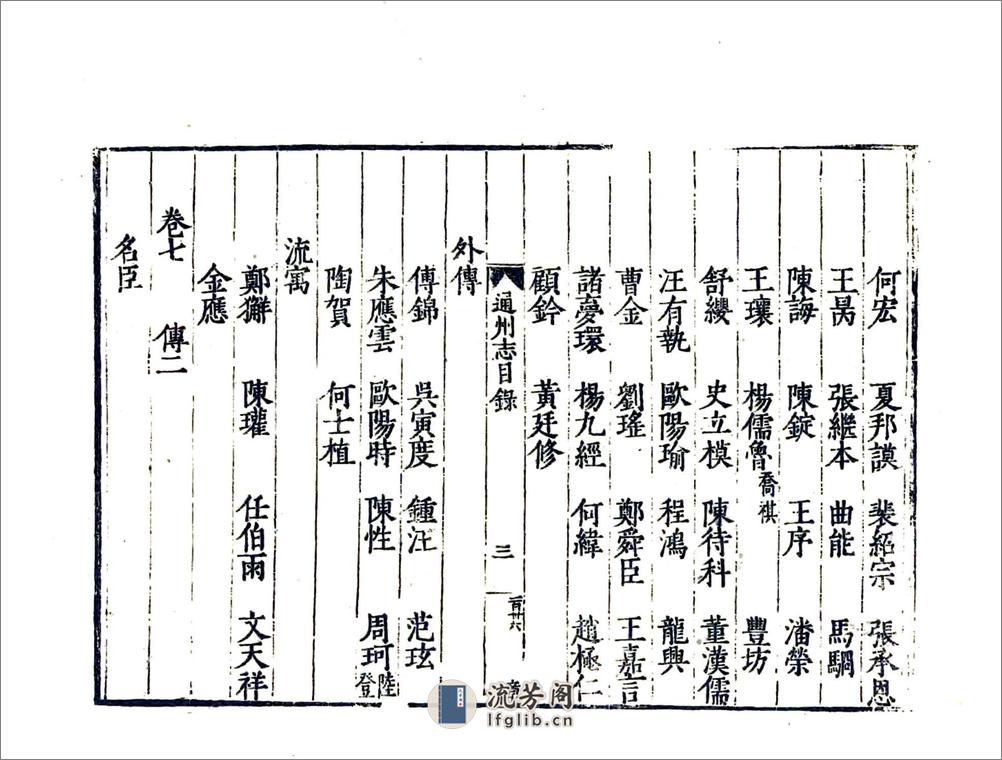 何宏 夏邦謨 裴紹宗 張承恩
王昺 張繼本 曲能 馬駉
陳誨 陳錠 王序 潘榮
王瓖 楊儒魯 喬祺 豐坊
舒纓 史立模 陳待科 董漢儒
汪有執 歐陽瑜 程鴻 龍興
曹金 劉瑤 鄭舜臣 王嘉言
諸憂環 楊九經 何緯 趙極仁
顧鈐 黃廷修
通州志目錄 三 百卅六
外傳
傅錦 吳寅度 鍾汪 范玹
朱應雲 歐陽時 陳性 周珂 陸登
陶賀 何士植
流寓
鄭獬 陳瓘 任伯雨 文天祥
金應
卷七 傳二
名臣
流芳阁
lfglib.cn